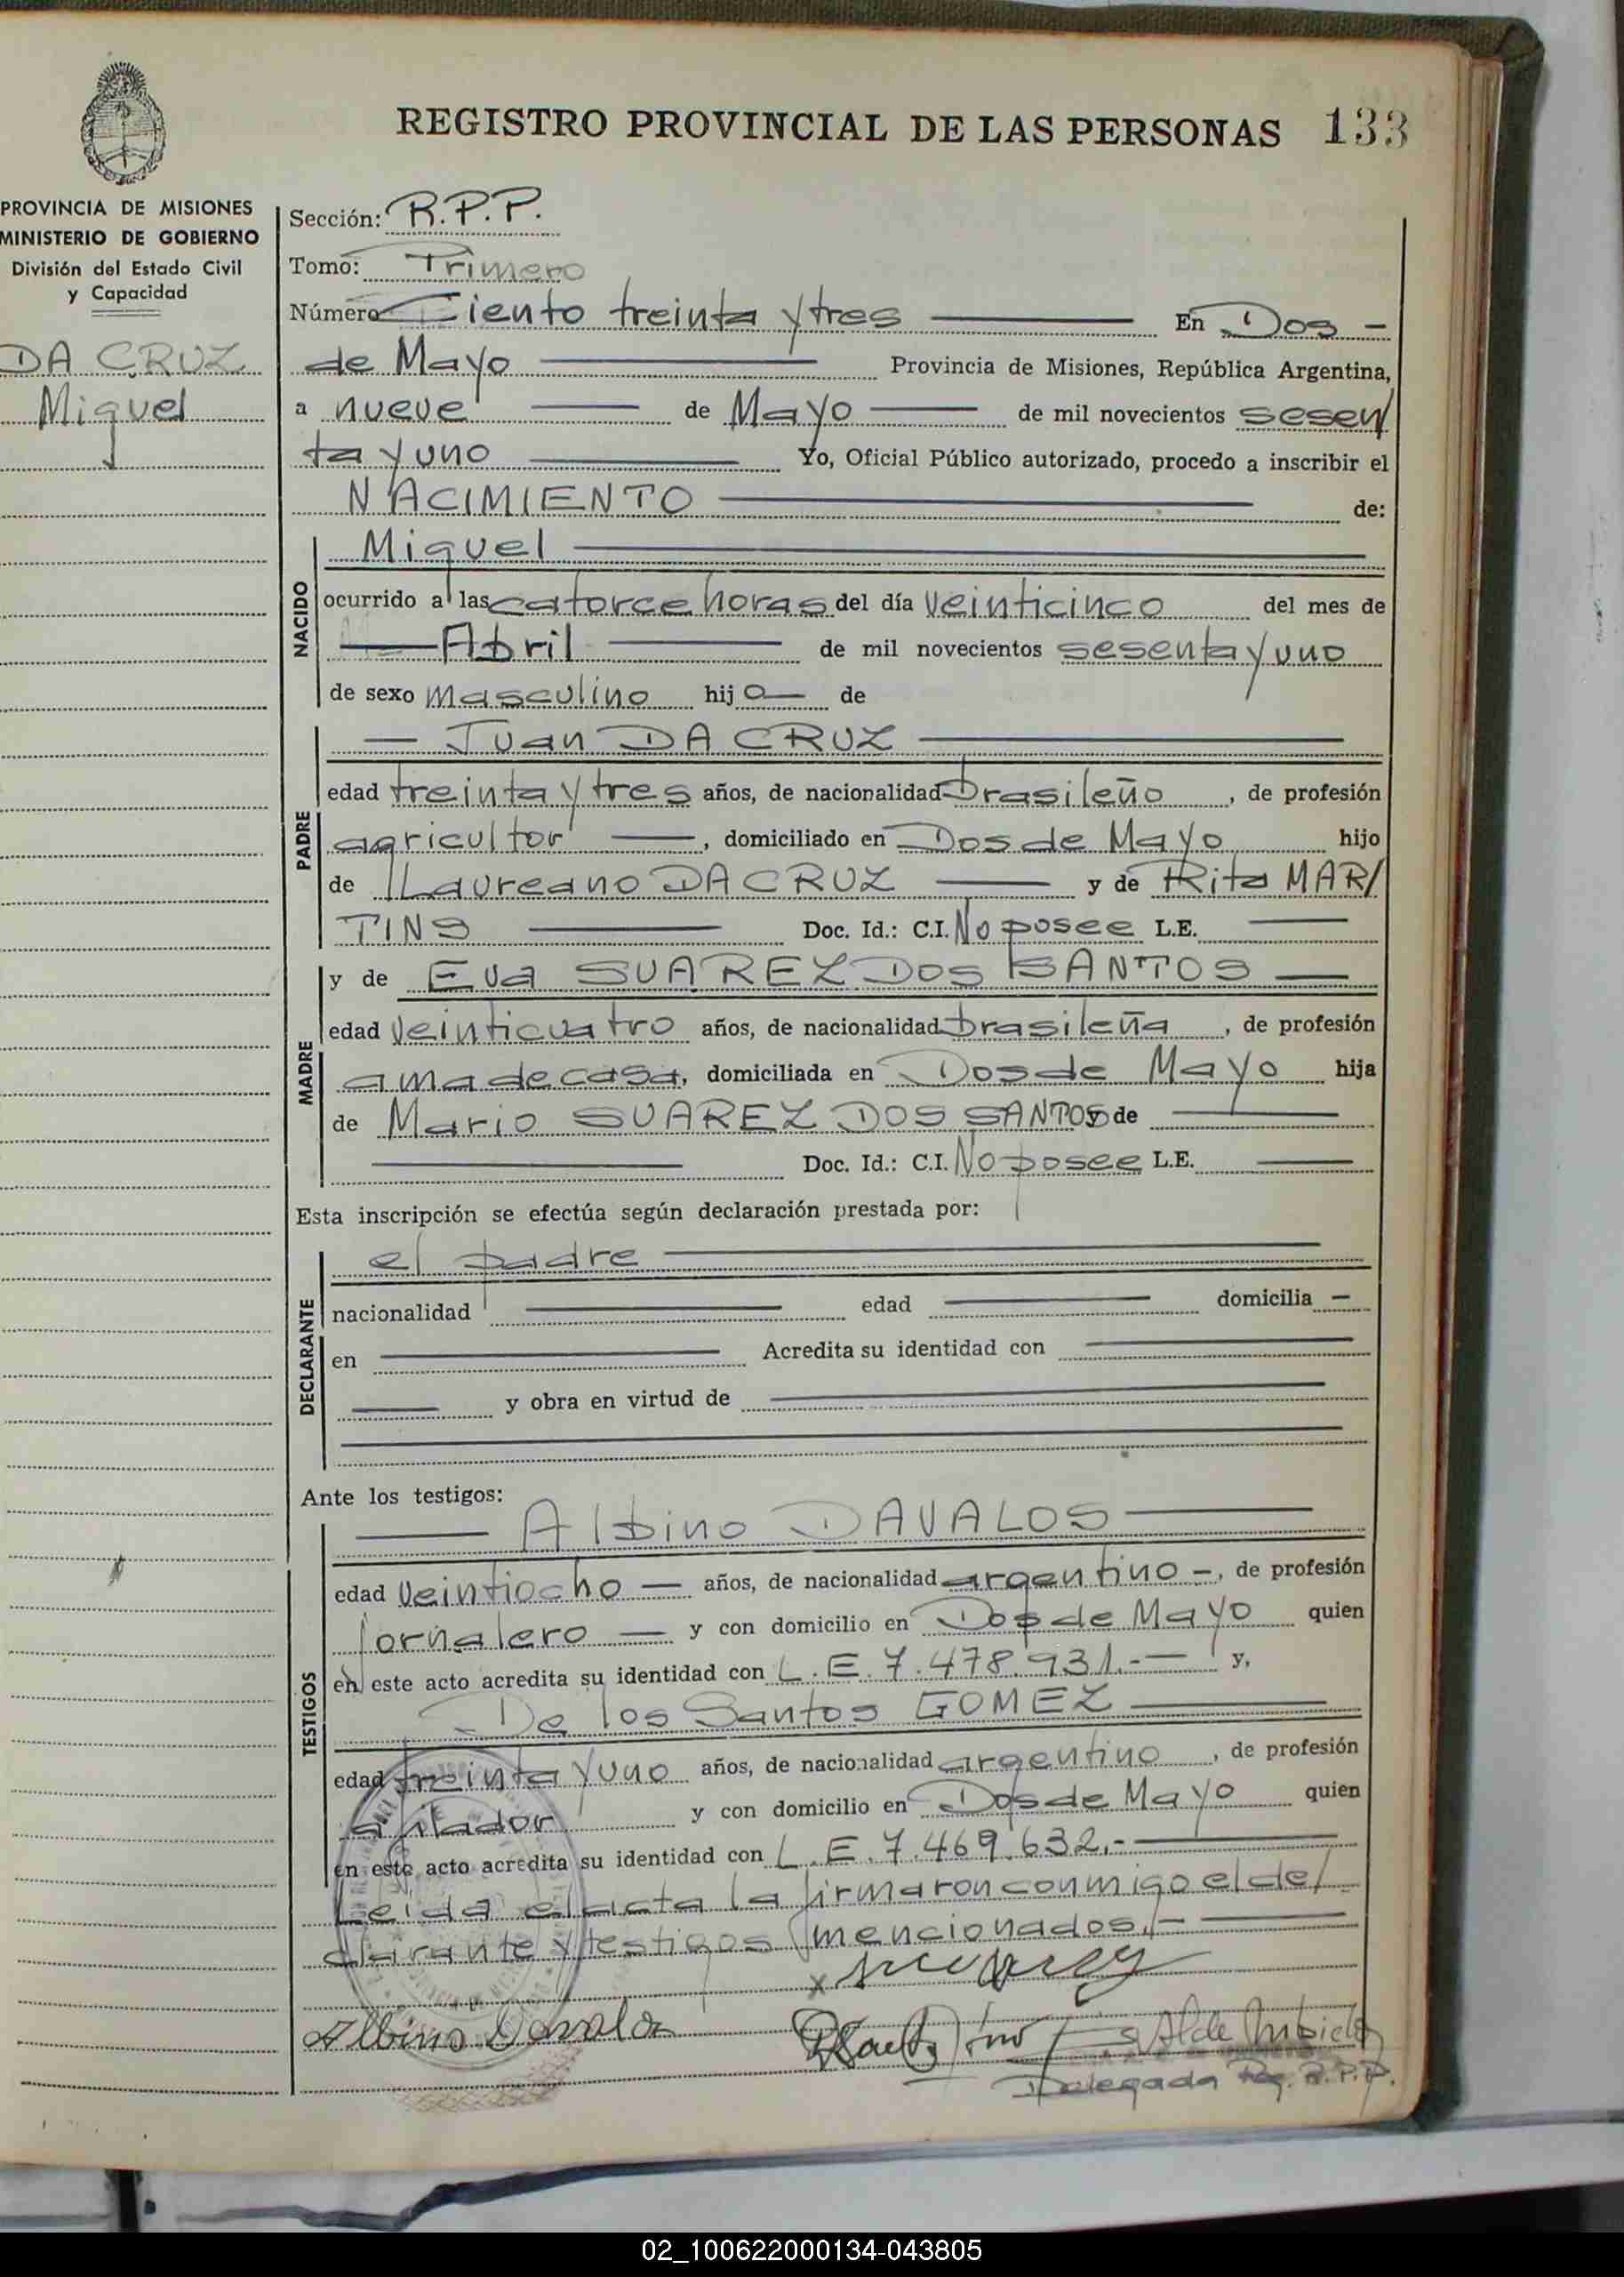 REGISTRO PROVINCIAL DE LAS PERSONAS 133
PROVINCIA DE MISIONES
MINISTERIO DE GOBIERNO
División del Estado Civil
y Capacidad
DA CRUZ
Miguel
Sección: R.P.P.
Tomo: Primero
Número Ciento treinta y tres En Dos -
de Mayo Provincia de Misiones, República Argentina,
a nueve de Mayo de mil novecientos sesen/
ta y uno Yo, Oficial Público autorizado, procedo a inscribir el
NACIMIENTO de:
NACIDO
Miguel
ocurrido a las catorce horas del día veinticinco del mes de
Abril de mil novecientos sesenta y uno
de sexo masculino hijo de
PADRE
Juan DA CRUZ
edad treinta y tres años, de nacionalidad brasileño, de profesión
agricultor, domiciliado en Dos de Mayo hijo
de Laureano DA CRUZ y de Rita MAR/
TINS Doc. Id.: C.I. No posee L.E.
MADRE
y de Eva SUAREZ DOS SANTOS
edad veinticuatro años, de nacionalidad brasileña, de profesión
ama de casa, domiciliada en Dos de Mayo hija
de Mario SUAREZ DOS SANTOS y de
Doc. Id.: C.I. No posee L.E.
Esta inscripción se efectúa según declaración prestada por:
DECLARANTE
el padre
nacionalidad edad domicilia
en Acredita su identidad con
y obra en virtud de
Ante los testigos:
TESTIGOS
Albino DAVALOS
edad veintiocho años, de nacionalidad argentino -, de profesión
jornalero y con domicilio en Dos de Mayo quien
en este acto acredita su identidad con L.E. 7.478.931.- y,
De los Santos GOMEZ
edad treinta y uno años, de nacionalidad argentino, de profesión
afilador y con domicilio en Dos de Mayo quien
en este acto acredita su identidad con L.E. 7.469.632.-
Leida el acta la firmaron conmigo el de/
clarante y testigos mencionados.-
x
Albino Davalos
Delegada Reg. R.P.P.
02_100622000134-043805